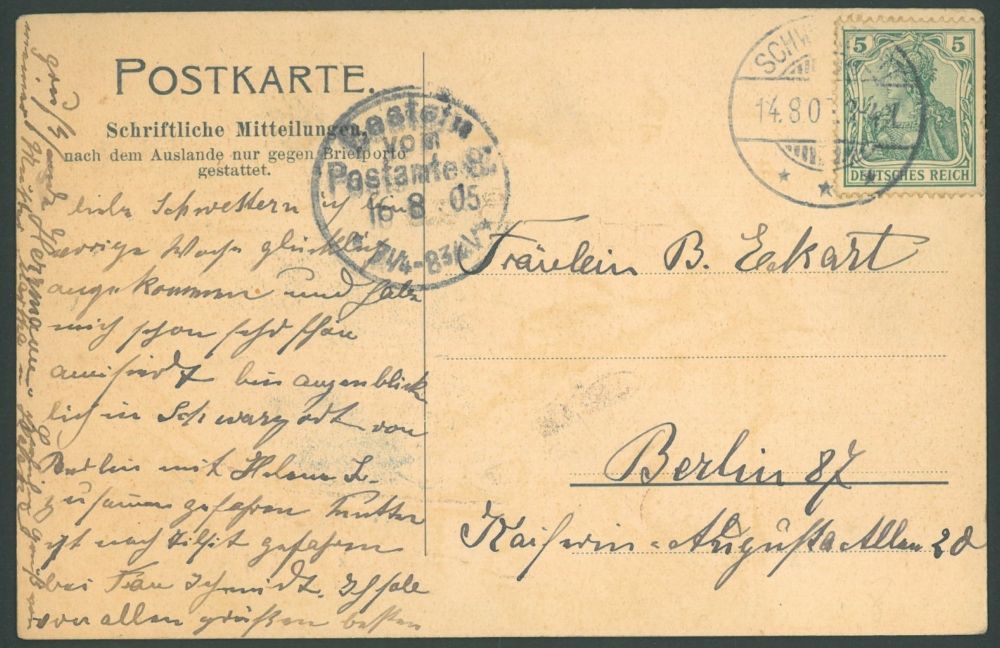 POSTKARTE.
Schriftliche Mitteilungen,
nach dem Auslande nur gegen Briefporto
gestattet.
SCHW
14.8.0
5 5
DEUTSCHES REICH
Bestellt
vom
Postamte 87
16 8 05
7¼-8¾V
Fräulein B. Eckart
Berlin 87
Kaiserin-Augusta Allee 28
liebe Schwestern ich bin
vorige Woche glücklich
angekommen und habe
mich schon sehr schön
amüsirt bin augenblick
lich in Schwarzort von
mit Helene
zusammen gefahren Mutter
ist nach Tilsit gefahren
bei Frau Schmidt. Ich soll
von allen grüßen besten
Hermann